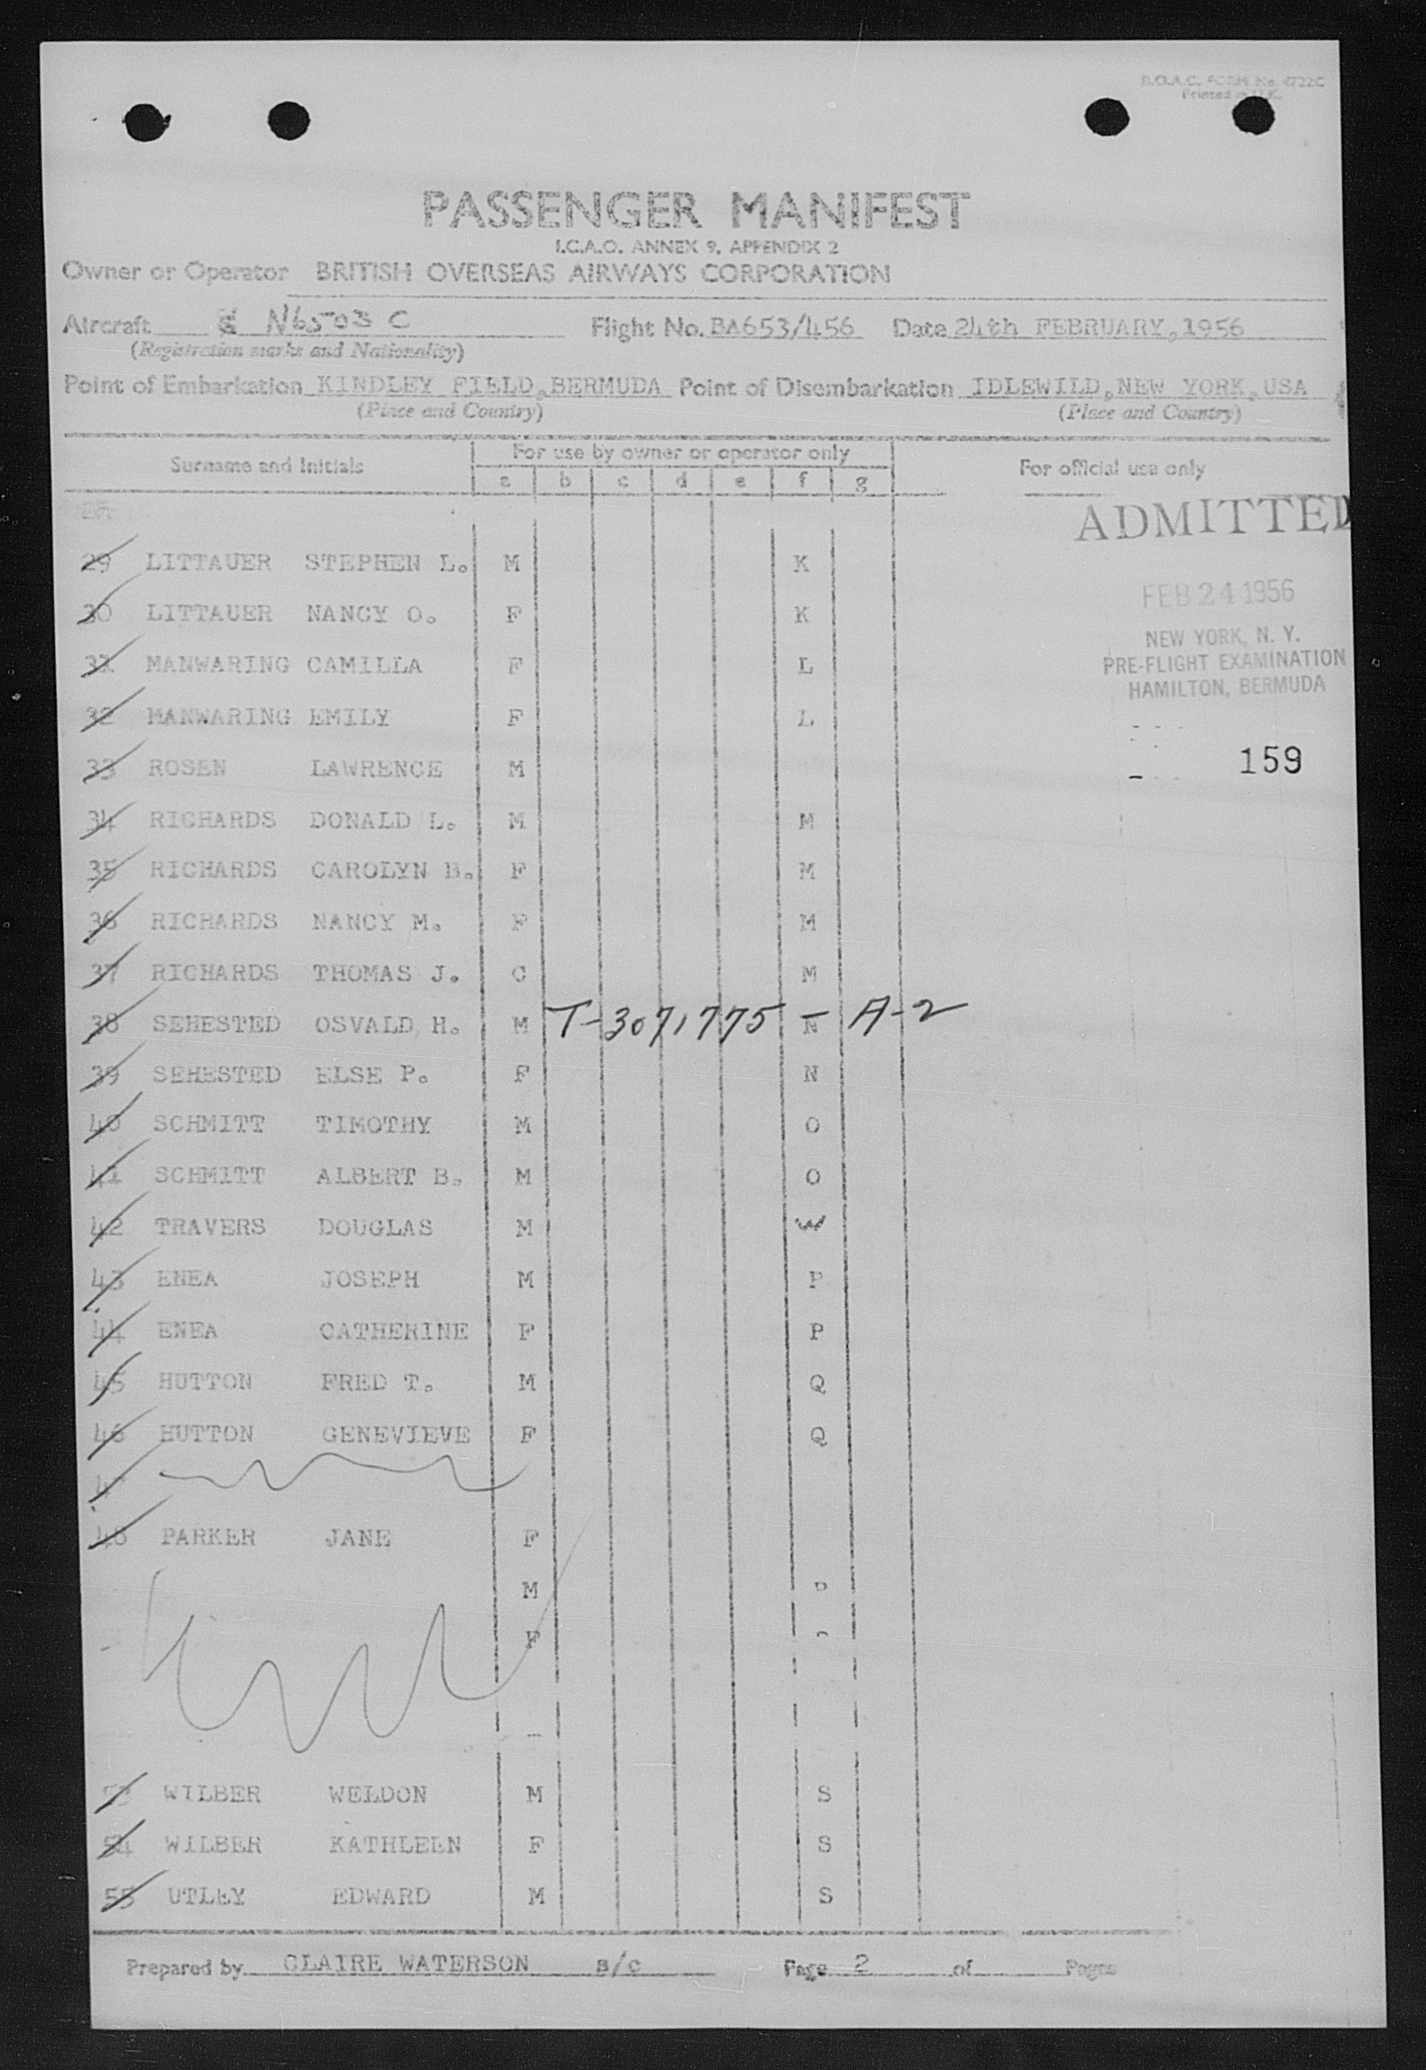 B.O.A.C. FORM No. 4722C
Printed in U.K.
PASSENGER MANIFEST
I.C.A.O. ANNEX 9, APPENDIX 2
Owner or Operator BRITISH OVERSEAS AIRWAYS CORPORATION
Aircraft N6503C Flight No. BA653/456 Date 24th FEBRUARY, 1956
(Registration marks and Nationality)
Point of Embarkation KINDLEY FIELD, BERMUDA Point of Disembarkation IDLEWILD, NEW YORK, USA
(Place and Country) (Place and Country)
Surname and Initials For use by owner or operator only For official use only
a b c d e f g
ADMITTED
29 LITTAUER STEPHEN L. M K
FEB 24 1956
30 LITTAUER NANCY O. F K
NEW YORK, N. Y.
31 MANWARING CAMILLA F L
PRE-FLIGHT EXAMINATION
HAMILTON, BERMUDA
32 MANWARING EMILY F L
33 ROSEN LAWRENCE M
159
34 RICHARDS DONALD L. M M
35 RICHARDS CAROLYN B. F M
36 RICHARDS NANCY M. F M
37 RICHARDS THOMAS J. C M
38 SEHESTED OSVALD H. M T-3071775 - N A-2
39 SEHESTED ELSE P. F N
40 SCHMITT TIMOTHY M O
41 SCHMITT ALBERT B. M O
42 TRAVERS DOUGLAS M W
43 ENEA JOSEPH M P
44 ENEA CATHERINE F P
45 HUTTON FRED T. M Q
46 HUTTON GENEVIEVE F Q
48 PARKER JANE F
M
F
53 WILBER WELDON M S
54 WILBER KATHLEEN F S
55 UTLEY EDWARD M S
Prepared by CLAIRE WATERSON s/c Page 2 of Pages